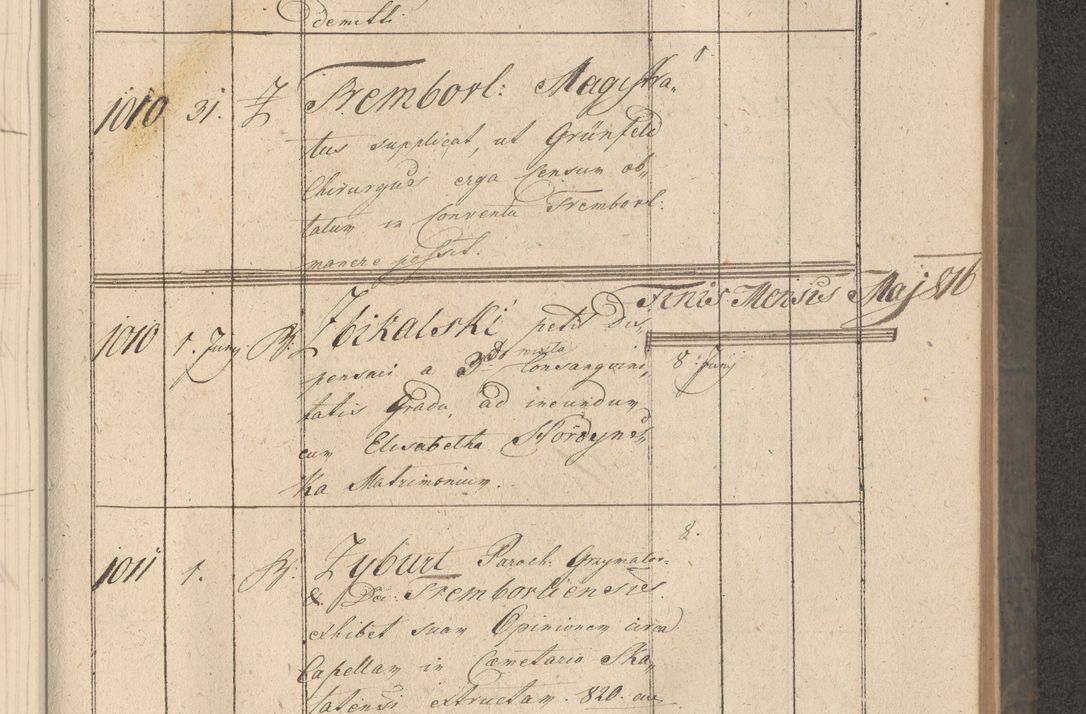 demitti
1.
1010 31. Tremborl: Magistra„
tus supplicat, ut Grünfeld
Chirurgus erga Censum ob„
latum in Conventu Tremborl:
manere possit.
Finis Mensis Maj 816
1010 1. Juny Zbikalski petit Dis„
pensari a 3tio mixto Consanguini„ 8 Juny
tatis Gradu, ad ineundum
cum Elisabetha Skordyns„
ka Matrimonium.
8.
1011 1. Zyburt Paroch: Grzymalov.
& Dec: Tremborliensis
exhibet suam Opinionem circa
Capellam in Cœmetario Ska„
latensi extructam. 820.